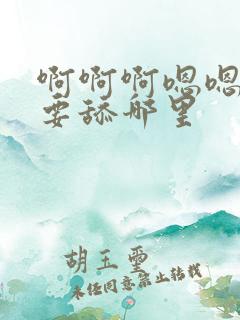 啊啊啊嗯嗯
要舔那里
胡玉玺
未经同意禁止转载